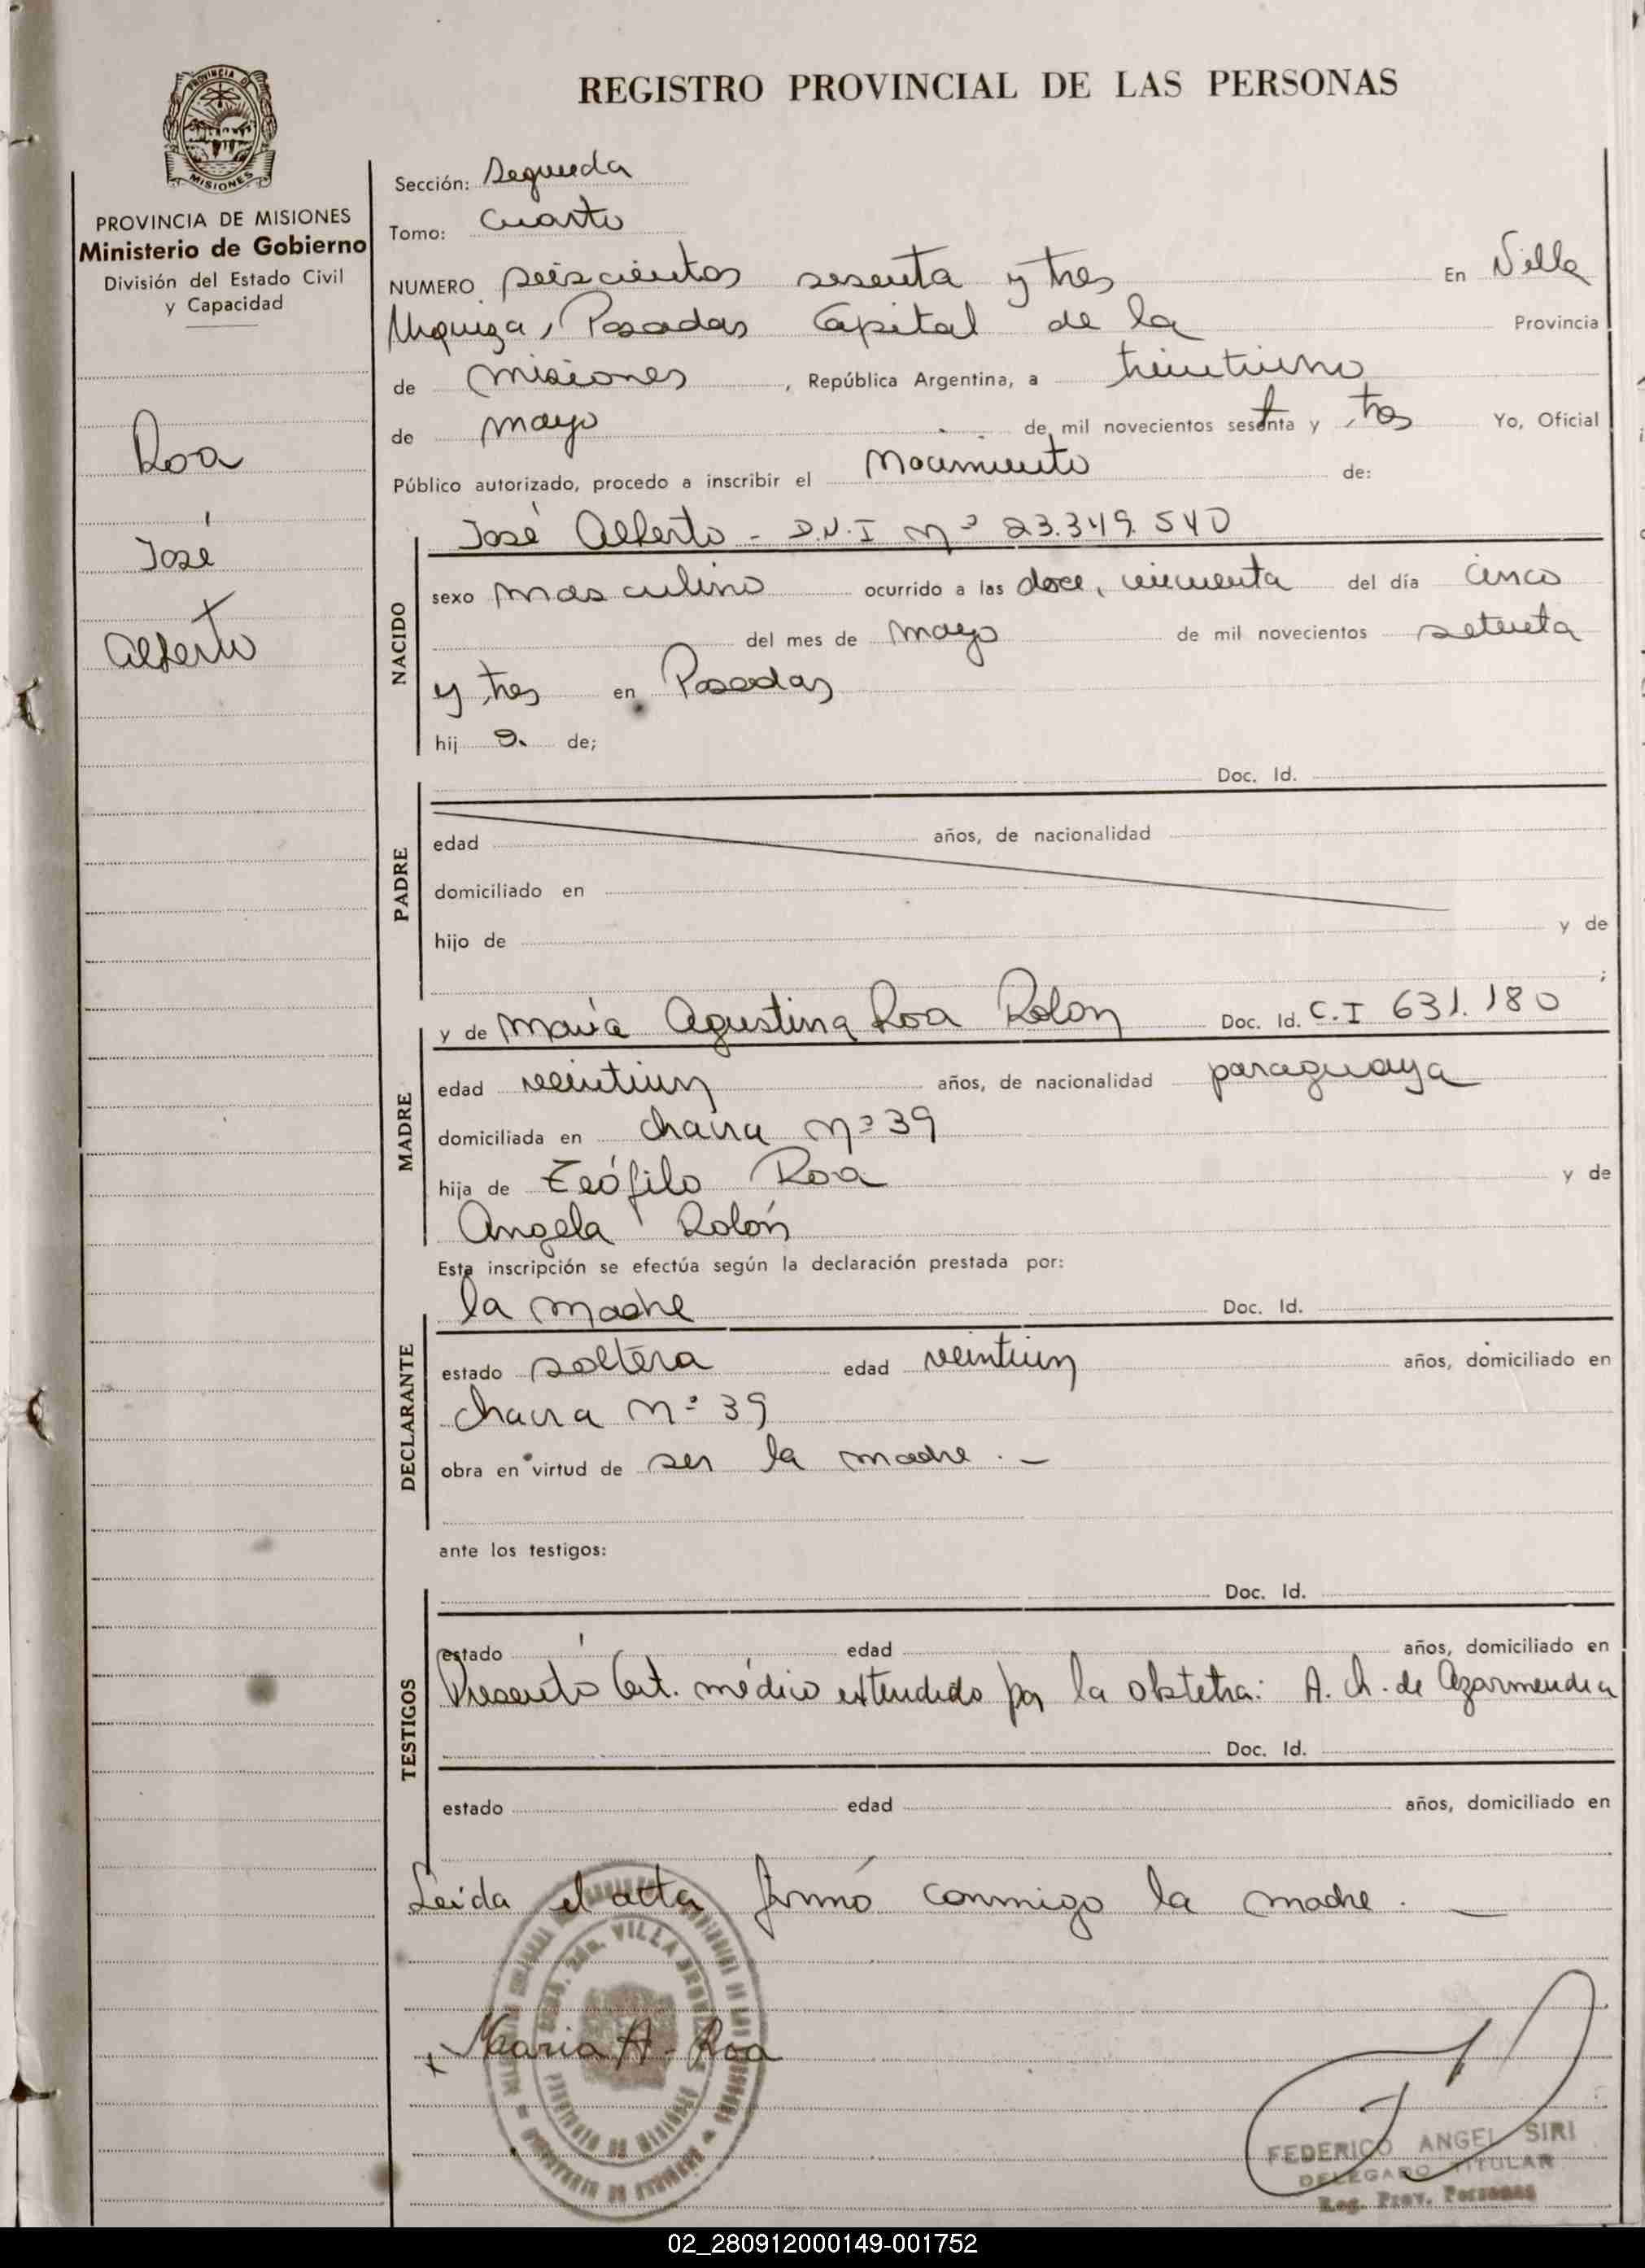 REGISTRO PROVINCIAL DE LAS PERSONAS
PROVINCIA DE
MISIONES
PROVINCIA DE MISIONES
Ministerio de Gobierno
División del Estado Civil
y Capacidad
Roa
José
Alberto
Sección: Segunda
Tomo: Cuarto
NUMERO seiscientos sesenta y tres En Villa
Urquiza, Posadas Capital de la Provincia
de Misiones, República Argentina, a treintiuno
de mayo de mil novecientos sesenta y tres Yo, Oficial
Público autorizado, procedo a inscribir el Nacimiento de:
NACIDO
José Alberto - D.N.I Nº 23.349.540
sexo masculino ocurrido a las doce, cincuenta del día cinco
del mes de mayo de mil novecientos setenta
y tres en Posadas
hij o. de;
PADRE
Doc. Id.
edad años, de nacionalidad
domiciliado en
hijo de y de
;
MADRE
y de María Agustina Roa Rolon Doc. Id. C.I 631.180
edad veintiun años, de nacionalidad paraguaya
domiciliada en chacra Nº 39
hija de Teófilo Roa y de
Angela Rolón
Esta inscripción se efectúa según la declaración prestada por:
DECLARANTE
la madre Doc. Id.
estado soltera edad veintiun años, domiciliado en
chacra Nº 39
obra en virtud de ser la madre. -
ante los testigos:
TESTIGOS
Doc. Id.
estado edad años, domiciliado en
Presentó Cert. médico extendido por la obstetra: A. Ch. de Azarmendia
Doc. Id.
estado edad años, domiciliado en
Leída el acta firmó conmigo la madre. -
VILLA
x Maria A - Roa
PROVINCIA DE MISIONES
FEDERICO ANGEL SIRI
DELEGADO TITULAR
Reg. Prov. Personas
02_280912000149-001752